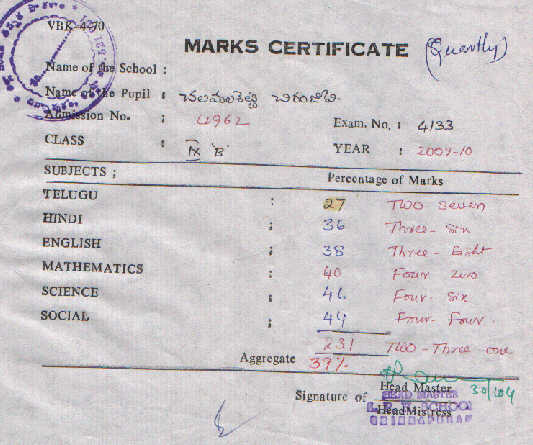 VBK-4-70
MARKS CERTIFICATE (Quartly)
Name of the School :
Name of the Pupil : చలమలశెట్టి చిరంజీవి
Admission No. : 4962 Exam. No. : 4133
CLASS : IX 'B' YEAR : 2009-10
SUBJECTS ; Percentage of Marks
TELUGU : 27 Two Seven
HINDI ; 36 Three - Six
ENGLISH ; 38 Three - Eight
MATHEMATICS : 40 Four Zero
SCIENCE ; 46 Four - Six
SOCIAL ; 44 Four - Four.
231 Two - Three one
Aggregate 39%
Head Master 30/10/09
Signature of HEAD MASTER
HeadMistress